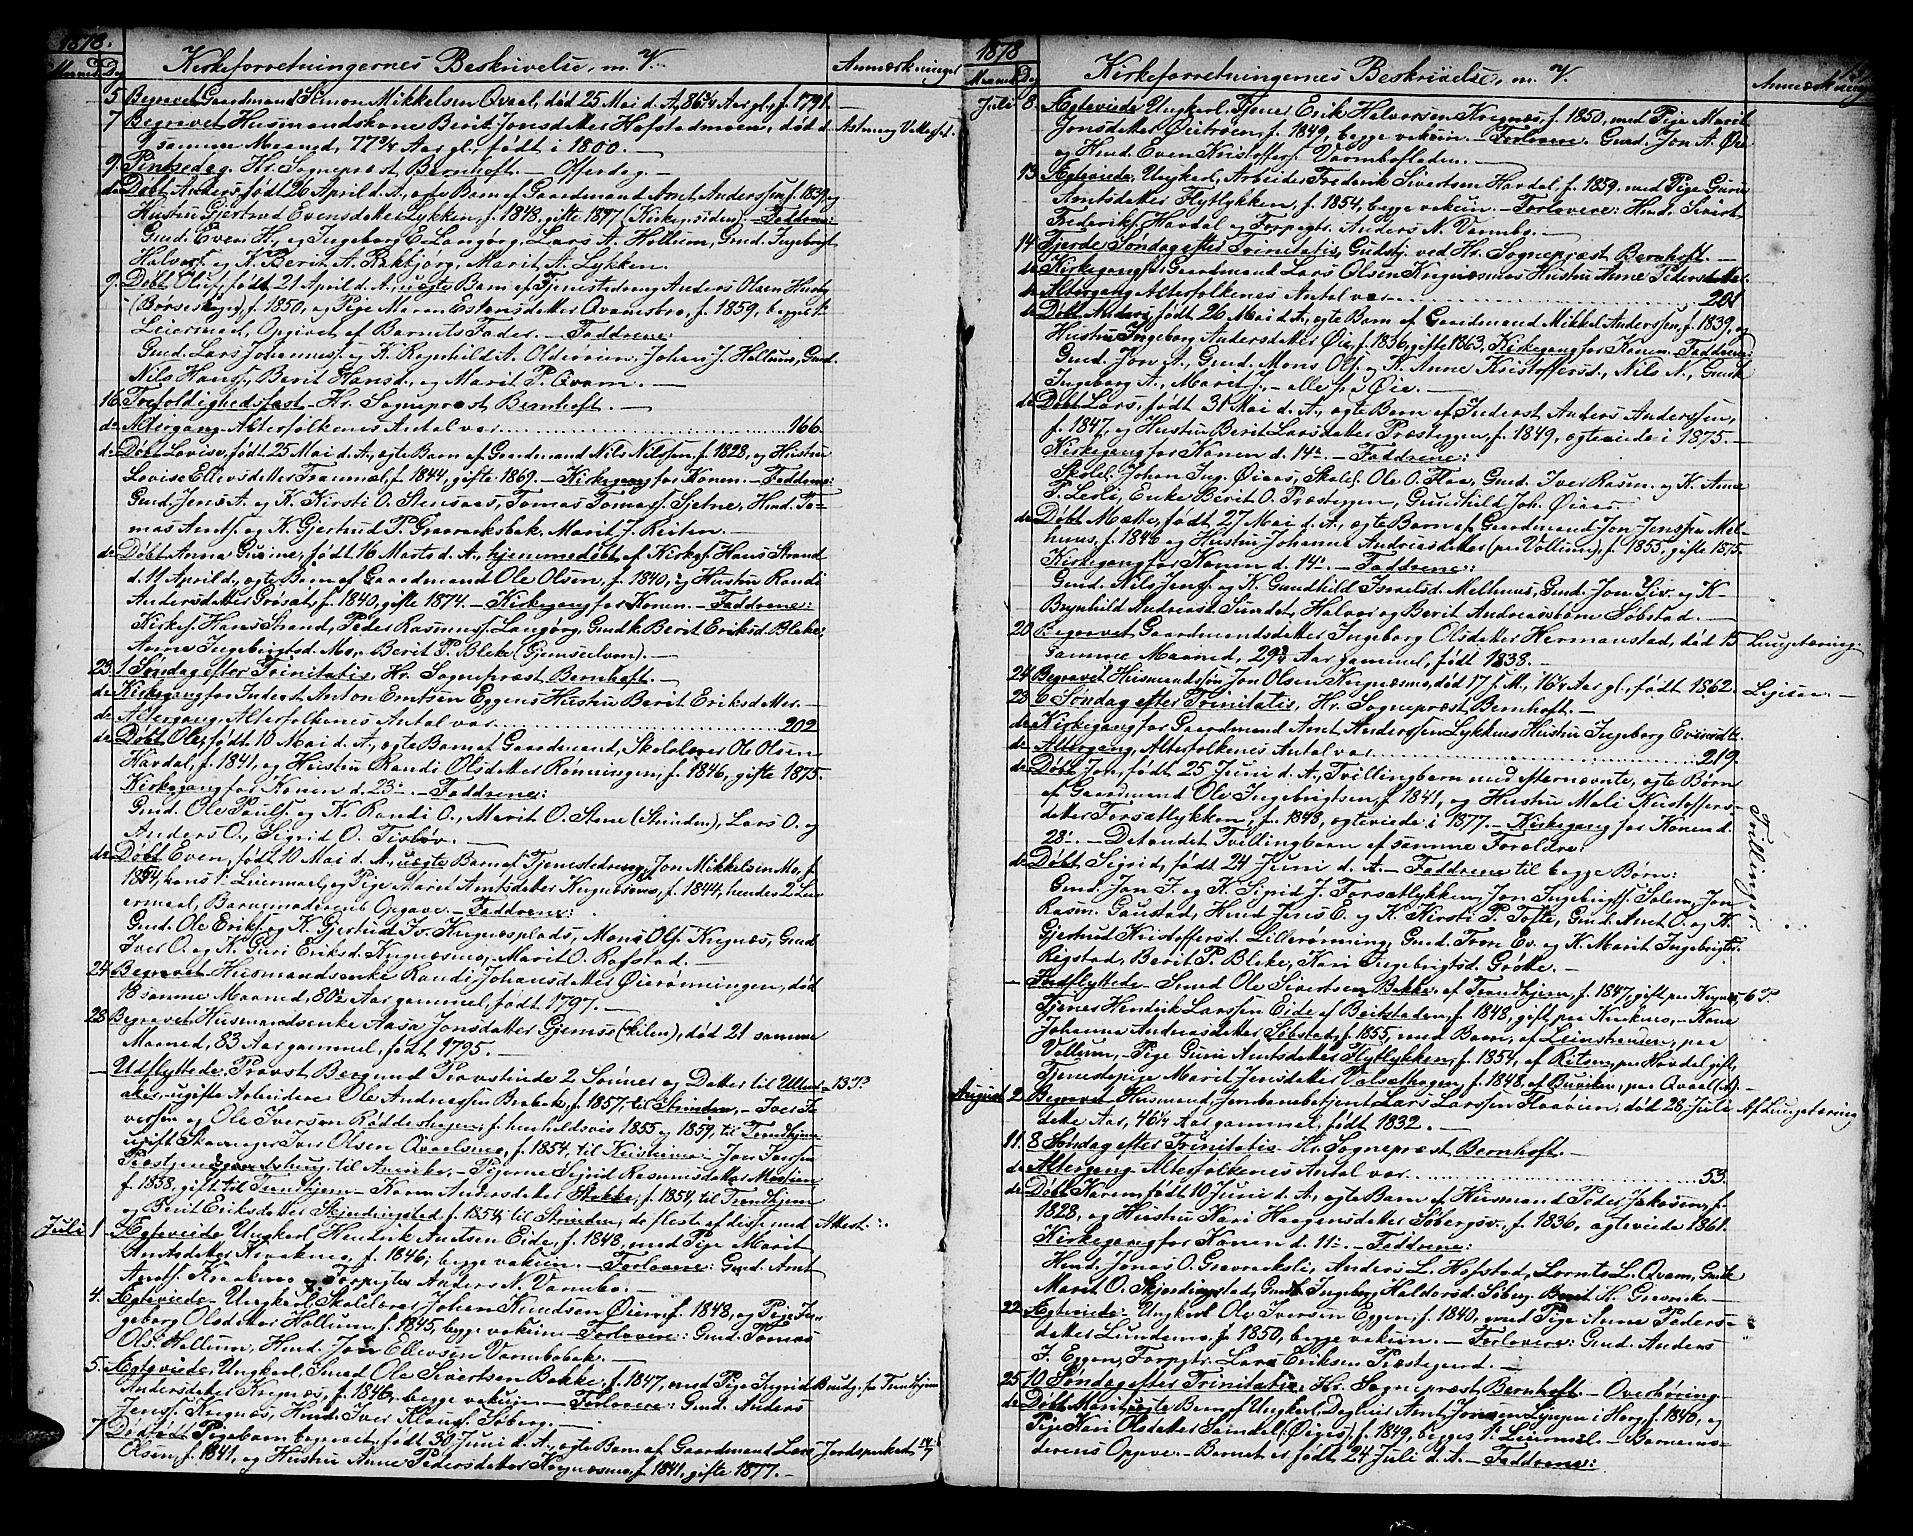 1878.
Maaned Dag Kirkeforretningernes Beskrivelse, m. V. Anmærkninger
5 Begravet Gaardmand Simon Mikkelsen Qvaal, død 25 Mai d. A, 86 3/4 Aar gl., f. 1791.
7 Begravet Husmandskone Berit Jonsdatter Hofstadmoen, død d.
samme Maaned, 77 3/4 Aar gl., født i 1800.
9 Pintsedag. Hr. Sogneprest Bernhoft. Offerdag.
do Døbt Anders, født 26 April d. A., ægte Barn af Gaardmand Arnt Anderssen f. 1839 og
Hustru Gjertrud Evensdatter Lykken, f. 1848, gifte 1877 (Kirkegsiden). Faddrene:
Gmd. Even H., og Ingeborg E. Langørg, Lars A. Hollum, Gmd. Ingebrigt
Halvorsf. og K. Berit A. Rakbjørg, Marit A. Lykken.
9. Døbt Oluf, født 21 April d. A., uægte Barn af Tjenestedreng Anders Olsen Husby
(Børseskogn), f. 1850, og Pige Maren Estensdatter Qvamsbro, f. 1859, begges 1ste
Leiermaal, Opgivet af Barnets Fader. Faddrene:
Gmd. Lars Johannesf. og K. Ragnhild A. Olderøien, Johan J. Hollum, Gmd.
Nils Hansf., Berit Hansd., og Marit P. Qvam.
16 Trefoldighedsfest. Hr. Sogneprest Bernhoft.
do Altergang. Alterfolkenes Antal var 166.
do Døbt Lovise, født 25 Mai d. A., ægte Barn af Gaardmand Nils Nilssen, f. 1828, og Hustru
Lovise Ellevsdatter Traamæl, f. 1844, gifte 1869. Kirkegang for Konen. Faddrene:
Gmd. Jens A. og K. Kirsti O. Stensaas, Tomas Tomasf. Sjetne, Hmd. To-
mas Arntf. og K. Gjertrud P. Gravraksbak, Marit J. Reiten.
do Døbt Anna Gurine, født 16 Marts d. A., hjemmedøbt af Kirkes. Hans Strand
d. 11 April d., ægte Barn af Gaardmand Ole Olsen, f. 1840, og Hustru Randi
Andersdatter Grøsæt, f. 1840, gifte 1874. Kirkegang for Konen. Faddrene:
Kirkes. Hans Strand, Peder Rasmusf. Langørg, Gmdk. Berit Eriksd. Bleke,
Anne Ingebrigtsd. Mo, Berit P. Bleke (Gjemselvem).
23 1 Søndag efter Trinitatis. Hr. Sogneprest Bernhoft.
do Kirkegang for Inderst Anton Erntsen Eggens Hustru Berit Eriksdatter.
do Altergang. Alterfolkenes Antal var 202
do Døbt Ole, født 10 Mai d. A., ægte Barn af Gaardmand, Skolelærer Ole Olsen
Havdal, f. 1841, og Hustru Randi Olsdatter Rønningen, f. 1846, gifte 1875.
Kirkegang for Konen d. 23. Faddrene:
Gmd. Ole Paulsf. og K. Randi O., Marit O. Stene (Strinden), Lars O. og
Anders O., Sigrid O. Tisløv.
do Døbt Even, født 10 Mai d. A., uægte Barn af Tjenestedreng Jon Mikkelsen Mo, f.
1854, hans 1ste Leiermaal, og Pige Marit Arntsdatter Krognæsmo, f. 1844, hendes 2 Lei-
ermaal, Barnemoderens Opgave. Faddrene:
Gmd. Ole Eriksf. og K. Gjertrud Iv. Krognæsplads, Mons Olsf. Krognæs, Gmd.
Iver O. og K. Guri Eriksd. Krognæsmo, Marit O. Rofstad.
24 Begravet Husmandsenke Randi Johansdatter Øierønningen, død
18 samme Maaned, 80 1/2 Aar gammel, født 1797.
28 Begravet Husmandsenke Aasa Jonsdatter Gjemse (Lilen), død 21 samme
Maaned, 83 Aar gammel, født 1795.
Udflyttede. Provst Bergund Provstinde 2 Sønner og Datter til Ullens- 13 P.
aker, ugifte Arbeidere Ole Andreassen Brobak, f. 1857, til Strinden, Iver I-
versen og Ole Iversen Rødderhagen, f. henholdsvis 1855 og 1859, til Trondhjem,
ugift Skomager Iver Olsen Qvaalsmo, f. 1854, til Kristiania, Jon Iversen
Præstgaardshaug til Amerika, Pigerne Sigrid Rasmusdatter Mostien
f. 1838, gift til Trondhjem, Karen Andersdatter Stokke, f. 1854, til Trondhjem
og Berit Eriksdatter Skjerdingstad, f. 1854, til Strinden, de fleste af disse med Attest.
Juli 1 Ægteviede, Ungkarl Hendrik Arntsen Eide, f. 1848, med Pige Marit
Arntsdatter Kraakmo, f. 1846, begge vakcin. Forlovere: Gmd. Arnt
Arntsf. Kraakmo og Forpagter Anders N. Varmbo.
4. Ægteviede, Ungkarl, Skolelærer Johan Knudsen Øien, f. 1848, og Pige In-
geborg Olsdatter Hollum, f. 1845, begge vakcin. Forlovere: Gmd. Tomas
Ols. Hollum, Hmd. Jon Ellevsen Varmbobak.
5. Ægteviede, Ungkarl, Smed Ole Sivertsen Bakke, f. 1847, med Pige Ingrid Brudg. fra Trondhjem
Andersdatter Krognæs, f. 1846, begge vakcin. Forlovere: Gmd. Anders
Jensf. Krognæs, Hmd. Iver Klausf. Søberg.
7 Dødfødt Pigebarn begravet, født 30 Juni d. A., ægte Barn af Gaardmand Lars Jordspaakast 14/7
Olsen, f. 1841, og Hustru Anne Pedersdatter Krognæsmo, f. 1841, gifte 1877.
1878
Maaned Dag Kirkeforretningernes Beskrivelse, m. V. Anmærkninger
Juli 8. Ægteviede Ungkarl, Tjener Erik Halvorsen Krognæs, f. 1850, med Pige Marit
Jonsdatter Øietrøen, f. 1849, begge vakcin. Forlovere: Gmd. Jon A. Øie
og Hmd. Even Kristoffersf. Varmbofladen.
13 Ægteviede, Ungkarl, Arbeider Frederik Sivertsen Havdal, f. 1859, med Pige Guru
Arntsdatter Flytlykken, f. 1854, begge vakcin. Forlovere: Hmd. Sivert
Frederiksf. Havdal og Forpagtr. Anders N. Varmbo.
14 Fjerde Søndag efter Trinitatis, Gudstj. ved Hr. Sogneprest Bernhoft.
do Kirkegang for Gaardmand Lars Olsen Krognæsmos Hustru Anne Pedersdatter.
do Altergang Alterfolkenes Antal var 201
do Døbt Anders, født 26 Mai d. A., ægte Barn af Gaardmand Mikkel Anderssen, f. 1839, og
Hustru Ingeborg Andersdatter Øie, f. 1836, gifte 1863. Kirkegang for Konen. Faddrene:
Gmd. Jon A., Gmd. Mons Ols. og K. Anne Kristoffersd., Nils N., Gmdk.
Ingeborg A., Marit J. alle fra Øie.
do Døbt Lars, født 31 Mai d. A., ægte Barn af Inderst Anders Anderssen,
f. 1847, og Hustru Berit Larsdatter Præsteggen, f. 1849, ægteviede i 1875.
Kirkegang for Konen d. 14. Faddrene:
Skoll. Johan Ing. Øiaas, Skoll. Ole O. Floa, Gmd. Iver Rasm. og K. Anne
P. Lerli, Enke Berit O. Præsteggen, Gunhild Joh. Øiaas.
do Døbt Mætte, født 27 Mai d. A., ægte Barn af Gaardmand Jon Jenssen Mel-
huus, f. 1846 og Hustru Johanna Andreasdatter (paa Vollum), f. 1855, gifte 1875.
Kirkegang for Konen d. 14. Faddrene:
Gmd. Nils Jensf. og K. Gundhild Ismelsd. Melhuus, Gmd. Jon Siv. og K.
Brynhild Andreasd. Sundet, Halvor og Berit Andreasbørn Søbstad.
20 Begravet Gaardmandsdatter Ingeborg Olsdatter Hermanstad, død 15 Lungetæring.
samme Maaned, 29 3/4 Aar gammel, født 1838.
24 Begravet Husmandssøn Jon Olsen Krognæsmo, død 17 f. M., 16 1/4 Aar gl., født 1862.
28 6 Søndag efter Trinitatis, Hr. Sogneprest Bernhoft.
do Kirkegang for Gaardmand Arnt Anderssen Lykkens Hustru Ingeborg Evensdtr.
do Altergang, Alterfolkenes Antal var 219
do Døbt Jon, født 25 Juni d. A., Tvillingbarn med efternævnte, ægte Børn
af Gaardmand Ole Ingebrigtsen, f. 1841, og Hustru Mali Kristoffers-
datter Forsætlykken, f. 1848, ægteviede i 1877. Kirkegang for Konen d.
28. Det andet Tvillingbarn af samme Forældre:
Tvillinger
do Døbt Sigrid, født 24 Juni d. A. Faddrene til begge Børn:
Gmd. Jon J. og K. Sigrid J. Forsætlykken, Jon Ingebrigtsf. Solem, Jon
Rasm. Gaustad, Hmd. Jens E. og K. Kirsti P. Tofte, Gmd. Arnt O. og K.
Gjertrud Kristoffersd. Lillerønning, Gmd. Tron Ev. og K. Marit Ingebrigtsd.
Rigstad, Berit P. Bleke, Kari Ingebrigtsd. Grøtte.
Indflyttede Smed Ole Sivertsen Bakke, af Trondhjem, f. 1847, gift paa Krognæs 6 P.
Tjener Hendrik Larssen Eide af Beitstaden, f. 1848, gift paa Kraakmo, Kone
Johanna Andreasdatter Søbstad, f. 1855, med Barn, af Leinstranden, paa
Vollum, Pige Guru Arntsdatter Flytlykken, f. 1854, af Rissen, paa Havdal gift,
Tjenestepige Marit Jensdatter Valsethagen, f. 1848, af Buviken, paa Qvaal (st).
August 2. Begravet Husmand, Jernbanebetjent Lars Larssen Flaaøien, død 28 Juli Af Lungetæring
dette Aar, 46 1/4 Aar gammel, født 1832.
11. 8 Søndag efter Trinitatis. Hr. Sogneprest Bernhoft.
do Altergang. Alterfolkenes Antal var 53.
do Døbt Karen, født 10 Juni d. A., ægte Barn af Husmand Peder Jakobsen, f.
1828, og Hustru Kari Haagensdatter Søbergsv., f. 1836, ægteviede 1861.
Kirkegang for Konen d. 11. Faddrene:
Hmd. Jonas O. Gravrakslie, Anders L. Hofstad, Lornts L. Qvam, Gmdk.
Marit O. Skjerdingstad, Gmdk. Ingeborg Haldorsd. Søberg, Berit H. Gravrak.
22. Ægteviede: Ungkarl Ole Iversen Eggen, f. 1840, med Pige Anne Peders-
datter Lundemo, f. 1850, begge vakcin. Forlovere: Gmd. Anders
J. Eggen, Forpgtr. Lars Eriksen Præstegaard.
25 10 Søndag efter Trinitatis, Hr. Sogneprest Bernhoft. Overhøring
do Døbt Marit, uægte Barn af Ungkarl, Dagleier Arnt Jonsen Lyngen i Horg, f. 1840, og
Pige Kari Olsdatter Samdal (Øigis), f. 1849, begges 1ste Leiermal. Barnemo-
derens Opgave. Barnet er født 24 Juli d. A. Faddrene: